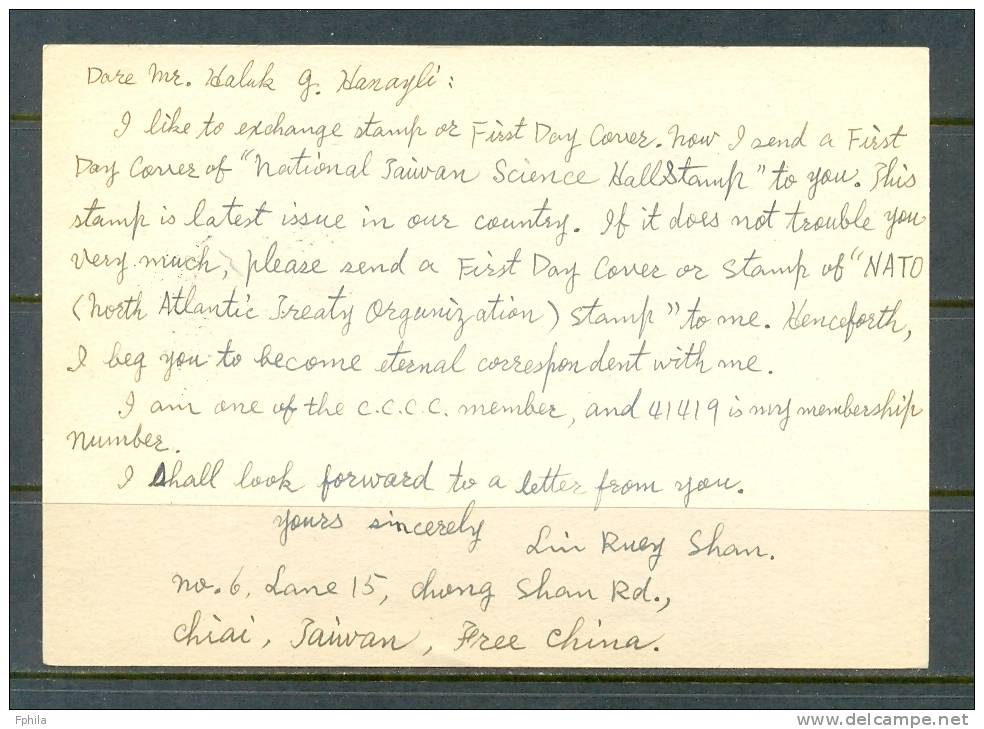 Dare Mr. Haluk g. Hanayli:
I like to exchange stamp or First Day Cover. Now I send a First
Day Cover of "National Taiwan Science Hall Stamp" to you. This
stamp is latest issue in our country. If it does not trouble you
very much, please send a First Day Cover or stamp of "NATO
(North Atlantic Treaty Organization) stamp" to me. Henceforth,
I beg you to become eternal correspondent with me.
I am one of the C.C.C.C. member, and 41419 is my membership
number.
I shall look forward to a letter from you.
yours sincerely Lin Ruey Shan.
no. 6, Lane 15, chung Shan Rd.,
chiai, Taiwan, Free China.
Fphila
www.delcampe.net